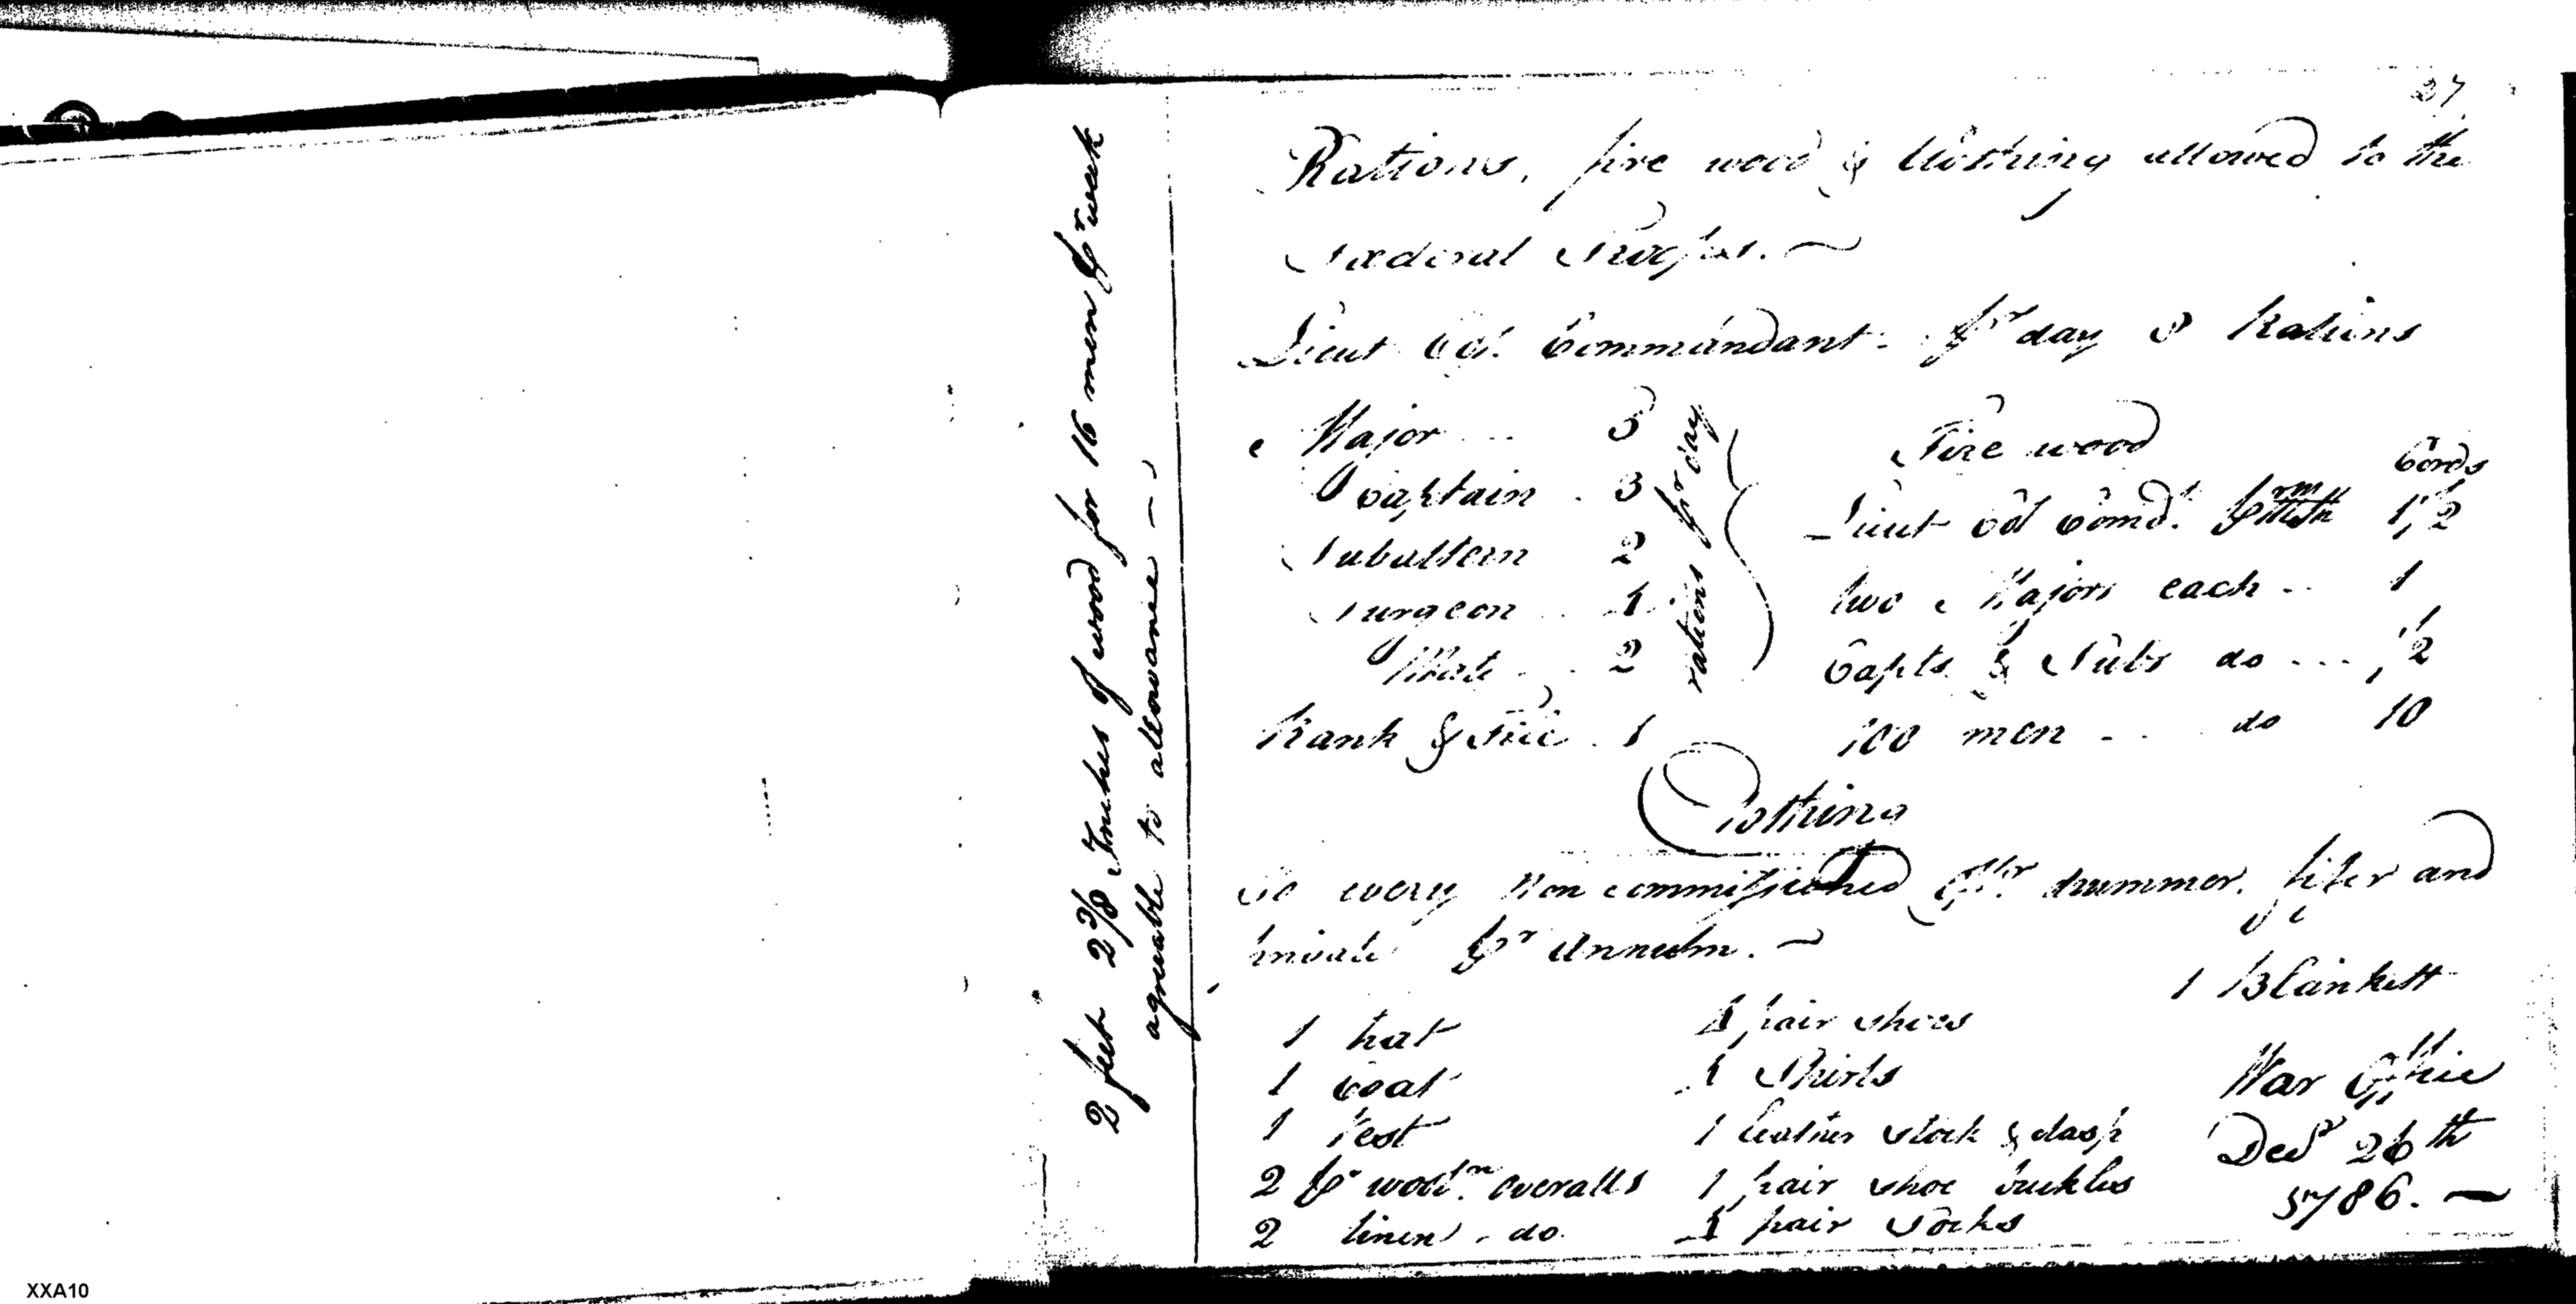 27
Rations, fire wood & Clothing allowed to the
Fœderal Troops. ~
Lieut Col. Commandant - pr day 8 Rations
Major ... 5
Captain . 3
Subaltern 2
Surgeon ..
Mate . . 2
Rank & File . 1
rations pr day
Fire wood
Cords
Lieut Col Comdt. 1 1/2
two Majors each .. 1
Capts & Subs do .... 1/2
100 men - . . do 10
Clothing
To every Non commissioned Offr. drummer. fifer and
private pr Annum. ~
1 hat
1 Coat
1 Vest
2 pr wooln. overalls
2 linen . do.
pair shoes
Shirts
1 leather stock & clasp
1 pair shoe buckles
pair Socks
1 Blankett
War Office
Decr 26th
1786. ~
2 feet 2 3/8 Inches of wood for 16 men pr week
agreeable to allowance - -